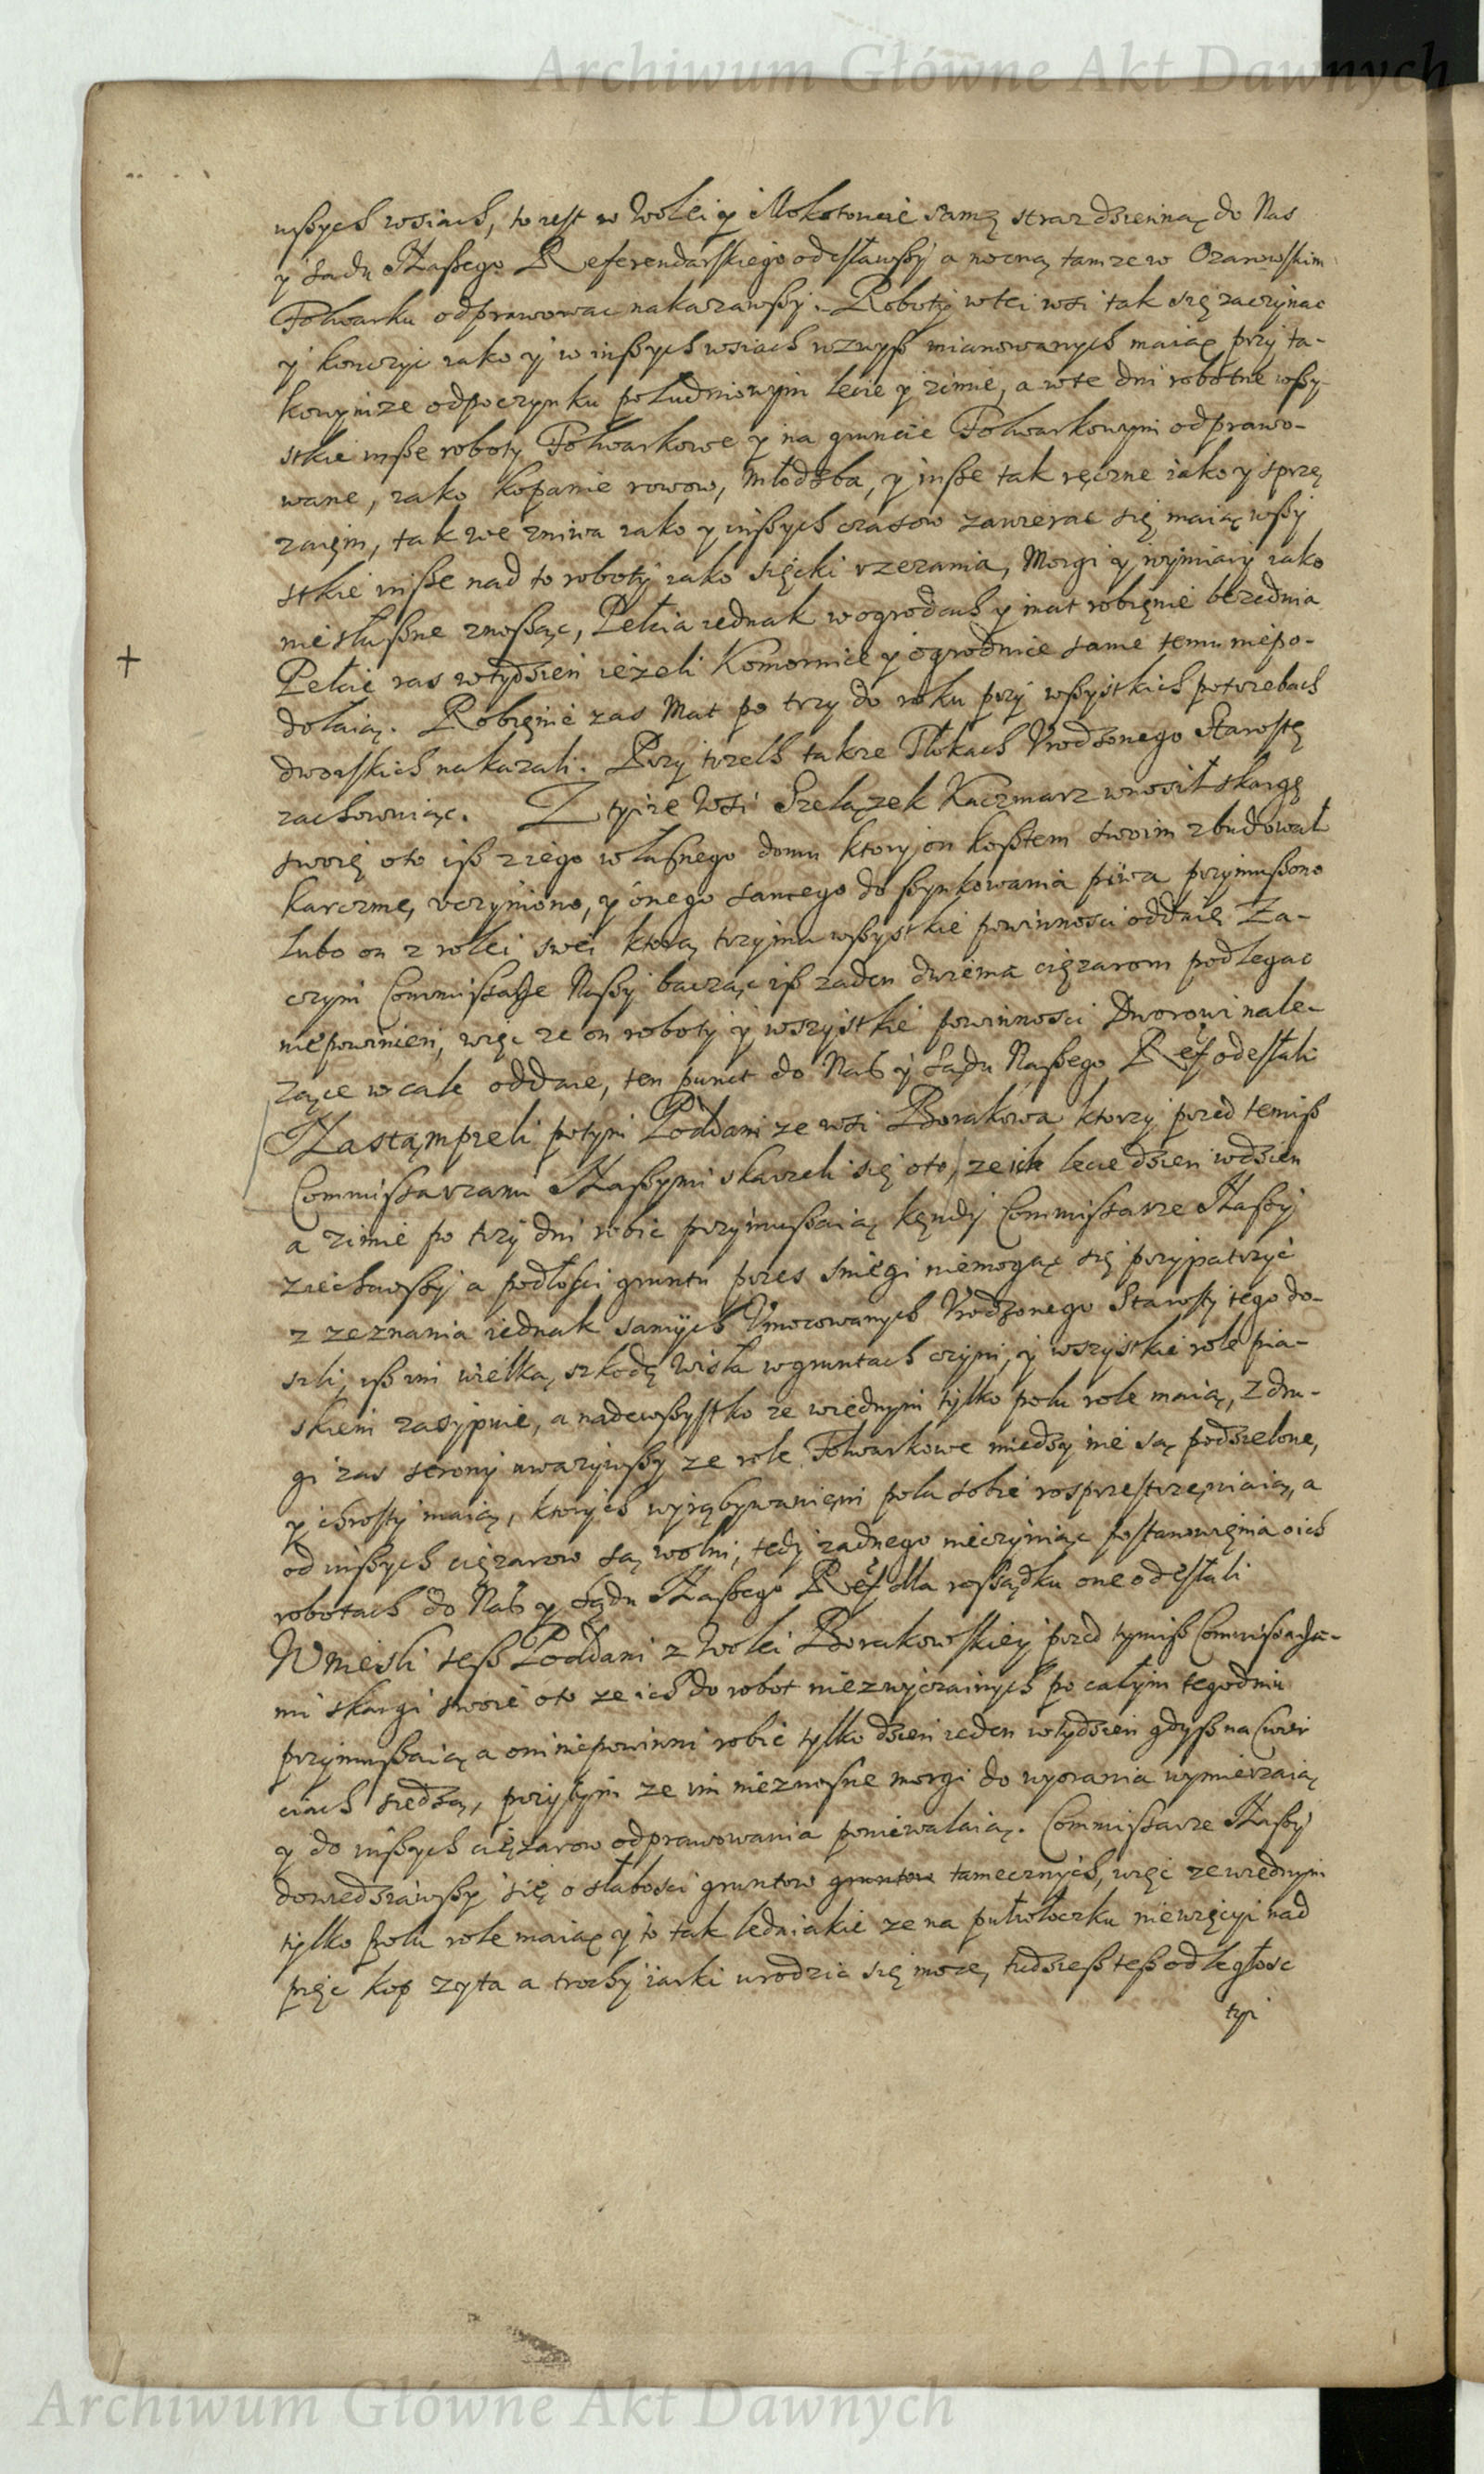 Archiwum Główne Akt Dawnych
nszych wsiach, to iest w Wolei y Mokotowie samę straz dzienną do Nas
y sadu Naszego Referendarskiego odesławszy a nocną tamze w Ozarowskim
Folwarku odprawowac nakazawszy. Roboty w tei wsi tak się zaczynac
y konczyc iako y w inszych wsiach wzwysz mianowanych maiąc przy ta-
kowymze odpoczynku południowym lecie y zimie, a w te dni robotne wszy-
stkie insze roboty Folwarkowe y na gruncie Folwarkowym odprawo-
wane, iako kopanie rowow, młodzba, y insze tak ręczne iako y sprzę
zaięm, tak we zniwa iako y inszych czasow zawierac się maią wszy
stkie insze nad to roboty iako sięcki rzezania, Morgi y wymiary iako
niesłuszne znosząc, Pełcia iednak w ogrodach y inat robięnie bezednia
Pełcie ras wtydzien iezeli Komornice y ogrodnice same temu niepo-
dolaią. Robięnie zas Mat po trzy do roku przy wszystkich potrzebach
dworskich nakazali. Przy trzech takze Tłokach Urodzonego Starostę
zachowuiąc. Z tyize Wsi Szelązek Kaczmarz wnosił skargę
swoię oto isz z iego własnego domu ktory on kosztem swoim zbudował
karczmę uczyniono, y onego samego do szynkowania piwa przymuszono
lubo on z rolei swei ktorą trzyma wszystkie powinnosci oddaie. Za-
czym Commissarze Naszy bacząc isz zaden dwiema cięzarom podlegac
niepowinien, więc ze on roboty y wszystkie powinnosci Dworowi nale-
zące wcale oddaie, ten punct do Nas y Sądu Naszego Ref odesłali
Nastąmpieli potym Poddani ze wsi Burakowa ktorzy przed temisz
Commissarzami Naszymi skarzeli się oto, ze ich lecie dzien wdzien
a zimie po trzy dni robic przymuszaią kędy Commissarze Naszy
ziechawszy a podłosci gruntu przes sniegi niemogąc się przypatrzyc
z zeznania iednak samych Umocowanych Urodzonego Starosty tego do-
szli, isz im wielką szkodę Wisła w gruntach czyni, y wszystkie role pia-
skiem zasypuie, a nadewszystko ze wiednym tylko polu role maią, z dru-
gi zas strony uwazywszy ze role Folwarkowe miedzy nie są podzielone,
y chrosty maią, ktorych wyrąbywanięm pola sobie rosprzestrzęniaią, a
od inszych cięzarow są wolni, tedy zadnego nieczyniąc postanowięnia o ich
robotach do Nas y Sądu Naszego Ref dla rossądku one odesłali
Wniesli tesz Poddani z Wolei Burakowskiey przed tymisz Commissarza-
mi skargi swoie oto ze ich do robot niezwyczainych po całym tegodniu
przymuszaią a oni niepowinni robic tylko dzien ieden wtydzien gdysz na Cwier
ciach siedzą, przytym ze im nieznosne morgi do wyorania wymierzaią
y do inszych cięzarow odprawowania poniewalaią. Commissarze Naszy
dowiedziawszy się o słabosci gruntow gruntow tamecznych, więc ze wiednym
tylko polu role maiąc y to tak ledaiakie ze na pułwłoczku niewięcyi nad
pięc kop zyta a trochy iarki urodzic się moze, tudziesz tesz odległosc
tyi
Archiwum Główne Akt Dawnych